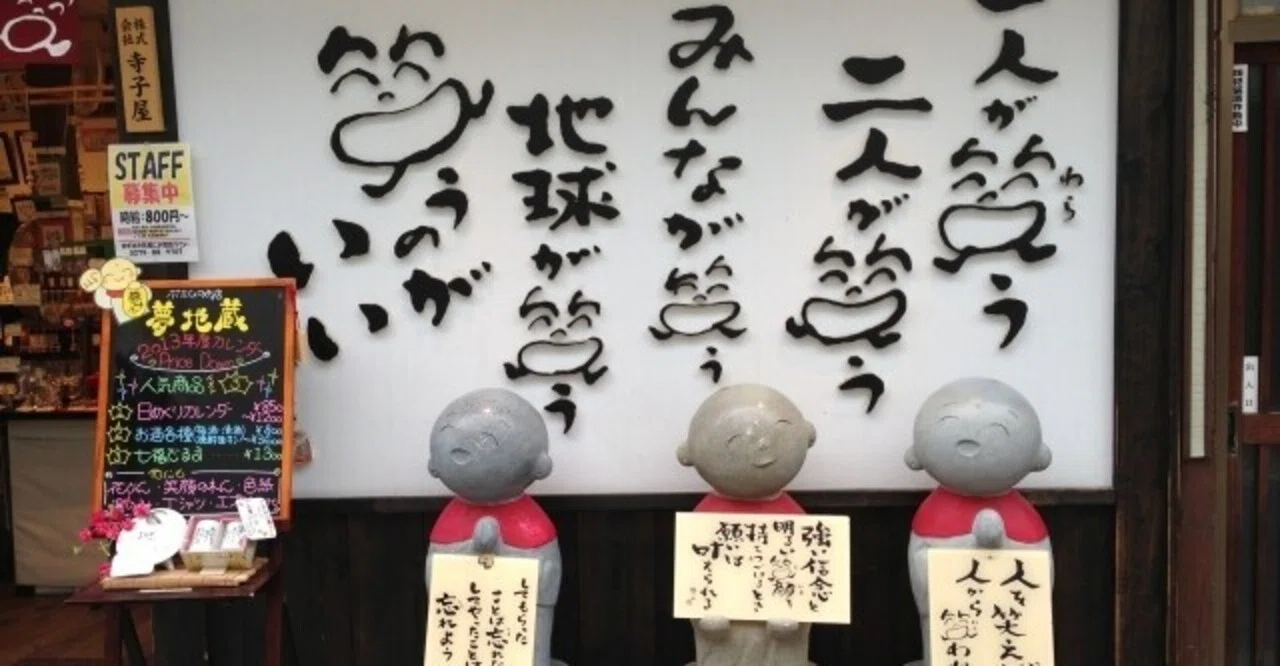 一人が笑う
わら
二人が笑う
みんなが笑う
地球が笑う
笑うのが
いい
株式
会社
寺子屋
STAFF
募集中
時給:800円~
夢地蔵
2013年度カレンダー
Price Down
人気商品
日めくりカレンダー ¥850
お酒各種
七福だるま
花りん・笑顔のれん・色紙
強い信念と
明るい笑顔を
持ちつづけるとき
願いは
叶えられる
人を笑えば
人から笑われ
してもらった
ことは忘れな
してやったことは
忘れよう